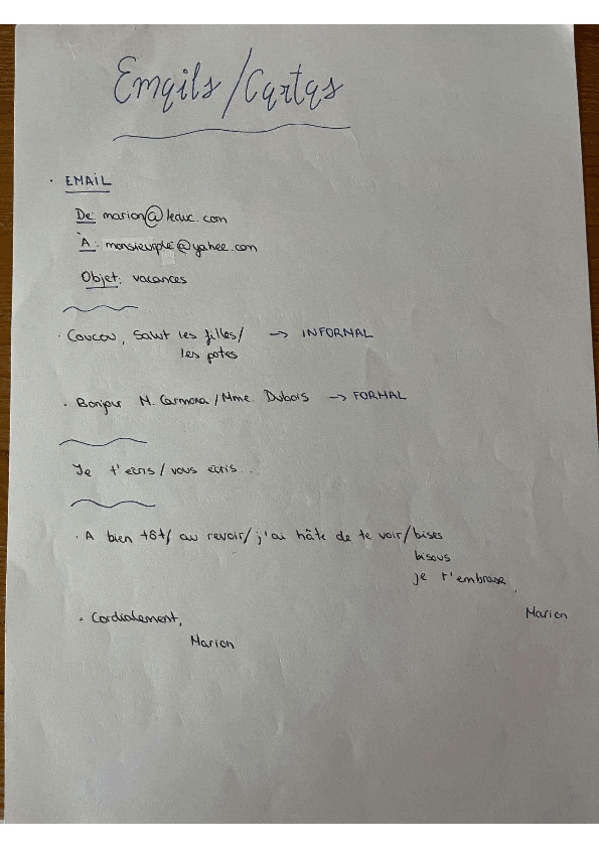 Emails/Cartas
· EMAIL
De: marion@leduc.com
À: @yahee.com
Objet: vacances
· Coucou, Salut les filles/ → INFORMAL
les potes
· Bonjour M. Carmona/Mme. Dubois → FORMAL
Je t'écris/vous écris...
· A bien tôt/ au revoir/j'ai hâte de te voir/bises
bisous
je t'embrasse,
Marion
· Cordialement,
Marion